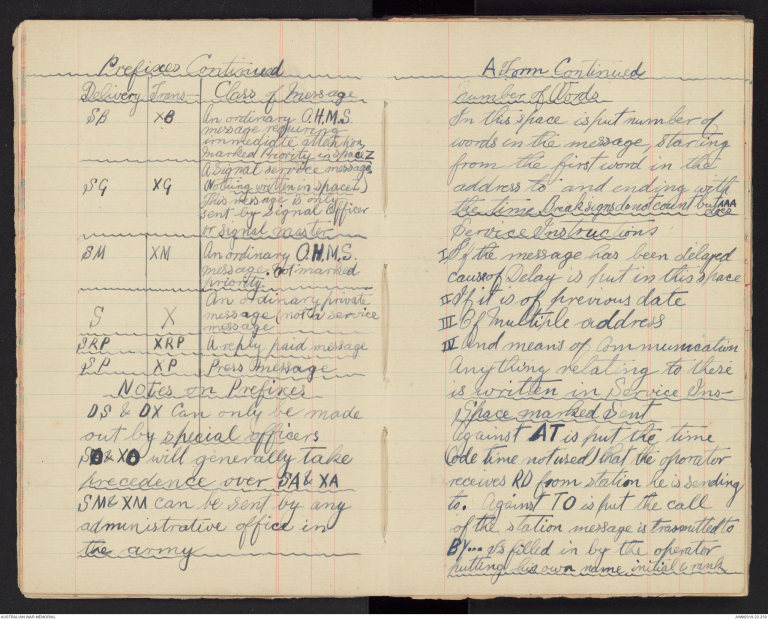 Prefixes Continued
Delivery Trans Class of Message
SB XB An ordinary O.H.M.S.
message requiring
immediate attention,
marked Priority in space Z
SG XG A Signal service message
(Nothing written in space Z)
This message is only
sent by Signal Officer
or Signal Master
SM XM An ordinary O.H.M.S.
message. not marked
priority.
S X An ordinary private
message (not a service
message
SRP XRP A reply paid message
SP XP Press message
Notes on Prefixes
DS & DX Can only be made
out by special officers
SO & XO will generally take
precedence over SA & XA
SM & XM can be sent by any
administrative office in
the army
A Form Continued
number of Words
In this space is put number of
words in the message, staring
from the first word in the
address to and ending with
the time Break signs do not count but AAA
does
Service Instrucions
I If the message has been delayed
cause of Delay is put in this space
II If it is of previous date
III Of Multiple address
IV And means of Communication
Anything relating to these
is written in Service Ins-
Space marked Sent
Against AT is put the time
(Code time not used) that the oporator
receives RD from station he is sending
to. Against TO is put the call
of the station message is transmitted to
BY... is filled in by the operator
putting his own name, initial & rank
AUSTRALIAN WAR MEMORIAL